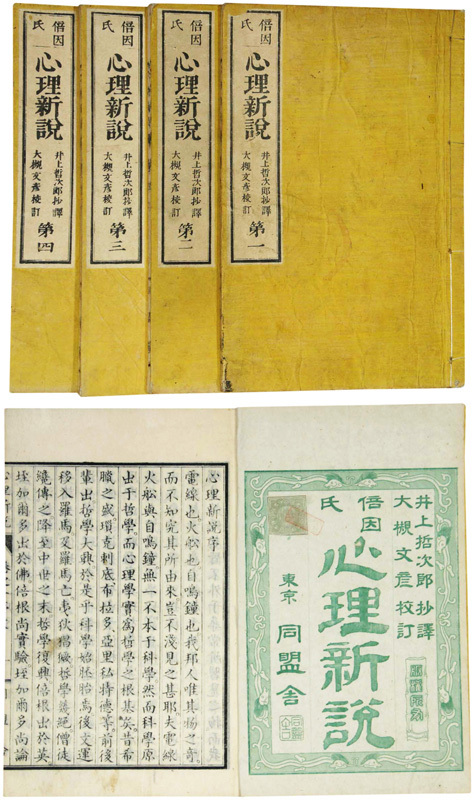 倍因氏
心理新說
井上哲次郎抄譯
大槻文彥校訂
第一
倍因氏
心理新說
井上哲次郎抄譯
大槻文彥校訂
第二
倍因氏
心理新說
井上哲次郎抄譯
大槻文彥校訂
第三
倍因氏
心理新說
井上哲次郎抄譯
大槻文彥校訂
第四
井上哲次郎 抄譯
大槻文彥 校訂
倍因氏
心理新說
東京 同盟舍
心理新說序
電線也火船也自鳴鐘也我邦人唯其物之奇
而不知究其所由來豈不淺見之甚耶夫電線
火船與自鳴鐘無一不本于科學然而科學原
出于哲學而心理學實爲哲學之根基矣昔希
臘之盛瑣克刺底布拉多亞里私特德等前後
輩出哲學大興於是乎科學始胚胎焉後文運
移入羅馬及羅馬亡夷狄猖獗哲學絕僧徒
纔傳之降至中世之末哲學復興倍根出於英
垤加爾多出於佛倍根尚實驗垤加爾多尚論